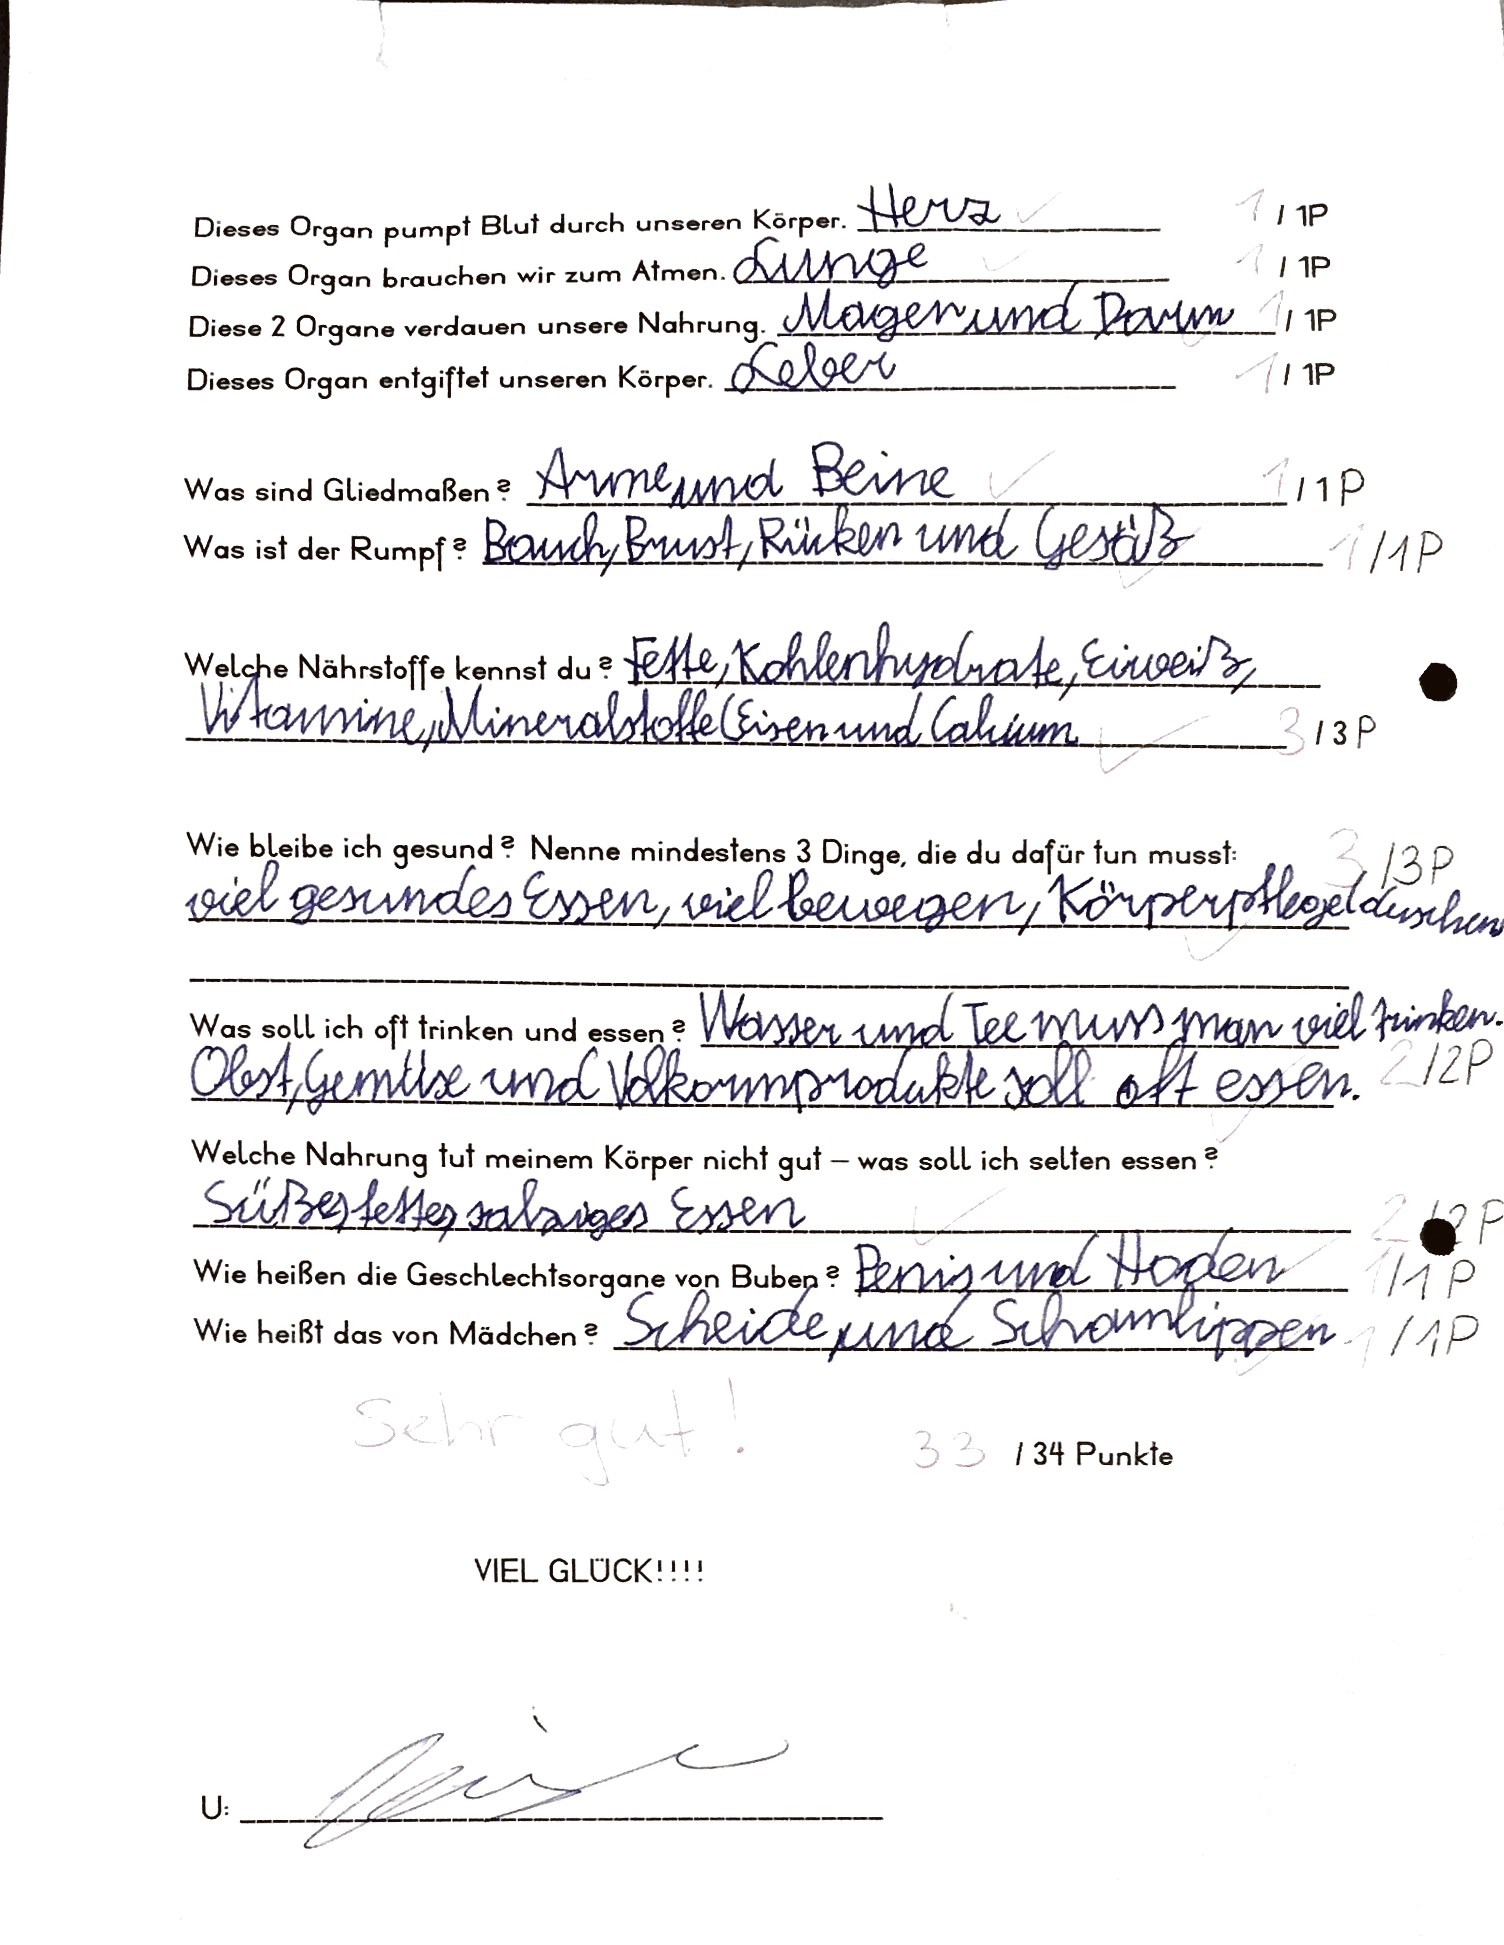 Dieses Organ pumpt Blut durch unseren Körper. Herz 1 / 1P
Dieses Organ brauchen wir zum Atmen. Lunge 1 / 1P
Diese 2 Organe verdauen unsere Nahrung. Magen und Darm 1 / 1P
Dieses Organ entgiftet unseren Körper. Leber 1 / 1P
Was sind Gliedmaßen? Arme und Beine 1 / 1P
Was ist der Rumpf? Bauch, Brust, Rücken und Gesäß 1 / 1P
Welche Nährstoffe kennst du? Fette, Kohlenhydrate, Eiweiß,
Vitamine, Mineralstoffe (Eisen und Calcium 3 / 3P
Wie bleibe ich gesund? Nenne mindestens 3 Dinge, die du dafür tun musst: 3 / 3P
viel gesundes Essen, viel bewegen, Körperpflege/duschen
Was soll ich oft trinken und essen? Wasser und Tee muss man viel trinken.
Obst, Gemüse und Volkornprodukte soll oft essen. 2 / 2P
Welche Nahrung tut meinem Körper nicht gut – was soll ich selten essen?
Süßes, fettes, salziges Essen 2 / 2P
Wie heißen die Geschlechtsorgane von Buben? Penis und Hoden 1 / 1P
Wie heißt das von Mädchen? Scheide und Schamlippen 1 / 1P
Sehr gut! 33 / 34 Punkte
VIEL GLÜCK!!!!
U: